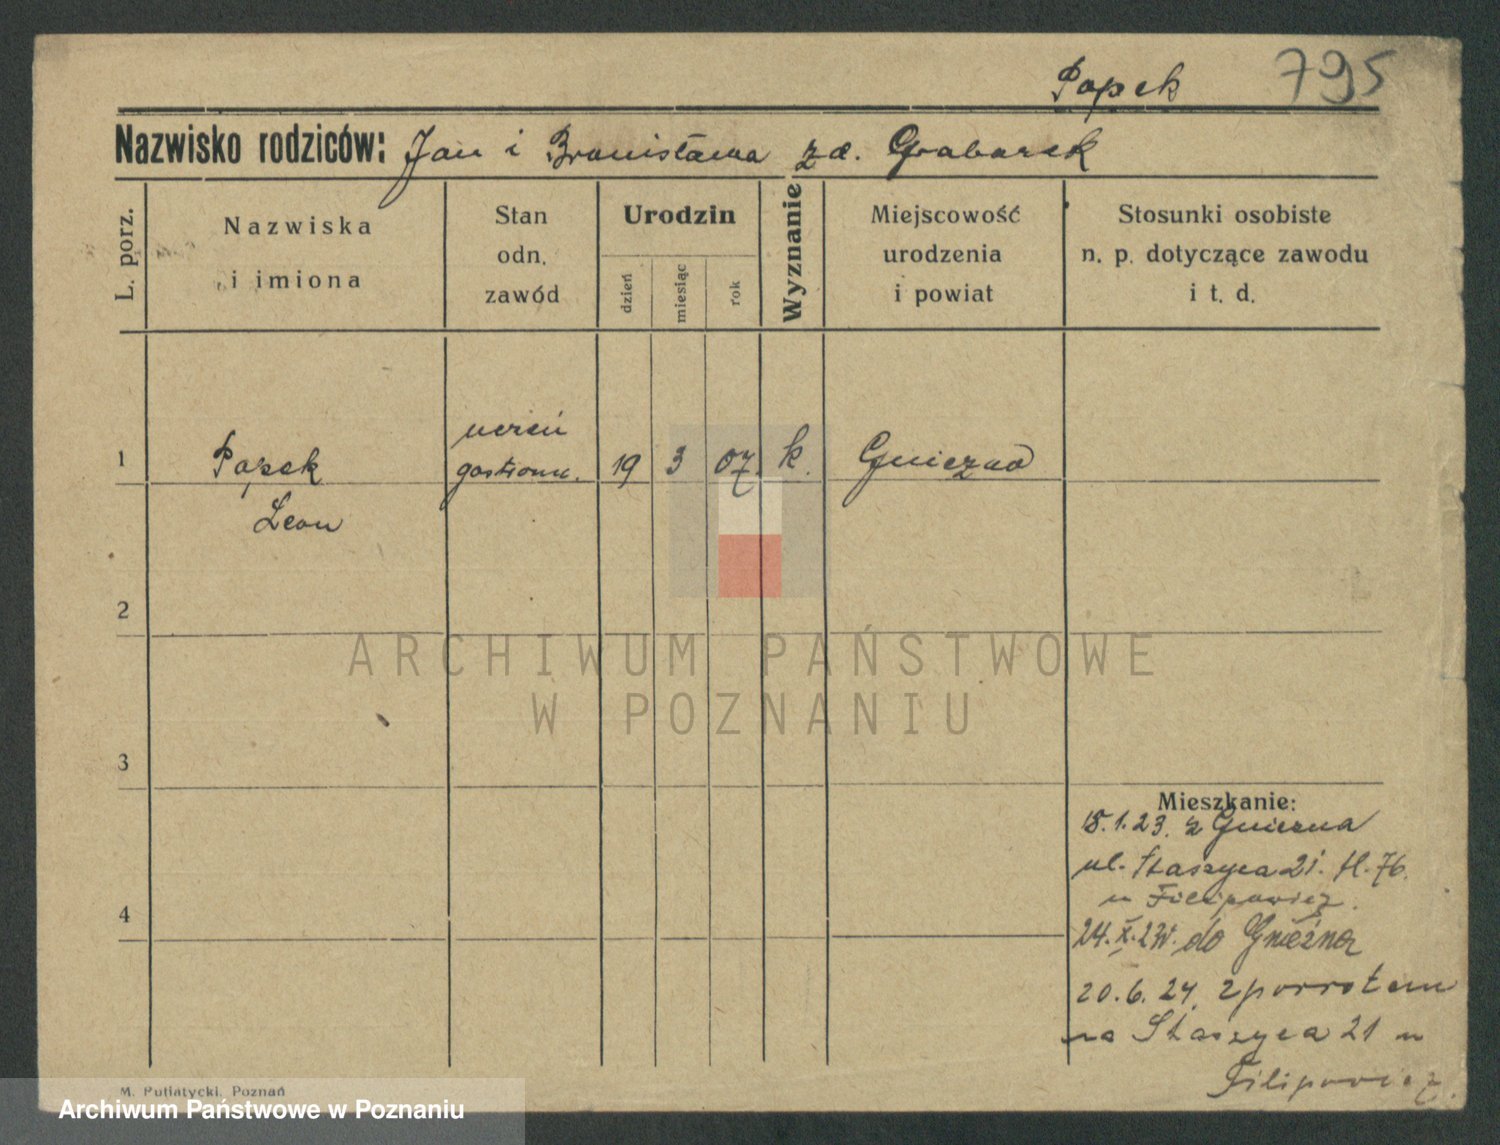 Papek 795
Nazwisko rodziców: Jan i Bronisława zd. Grabarek
L. porz.
Nazwiska
i imiona
Stan
odn.
zawód
Urodzin
dzień
miesiąc
rok
Wyznanie
Miejscowość
urodzenia
i powiat
Stosunki osobiste
n. p. dotyczące zawodu
i t. d.
uczeń
1 Papek gastronom. 19 3 07. k. Gniezno
Leon
2
ARCHIWUM PAŃSTWOWE
W POZNANIU
3
Mieszkanie:
15.1.23. z Gniezna
ul. Staszyca 21. H. 76.
u Filipowicz.
4
24. X. do Gniezna
20.6.24. z powrotem
na Staszyca 21 u
Filipowicz.
M. Putiatycki, Poznań
Archiwum Państwowe w Poznaniu